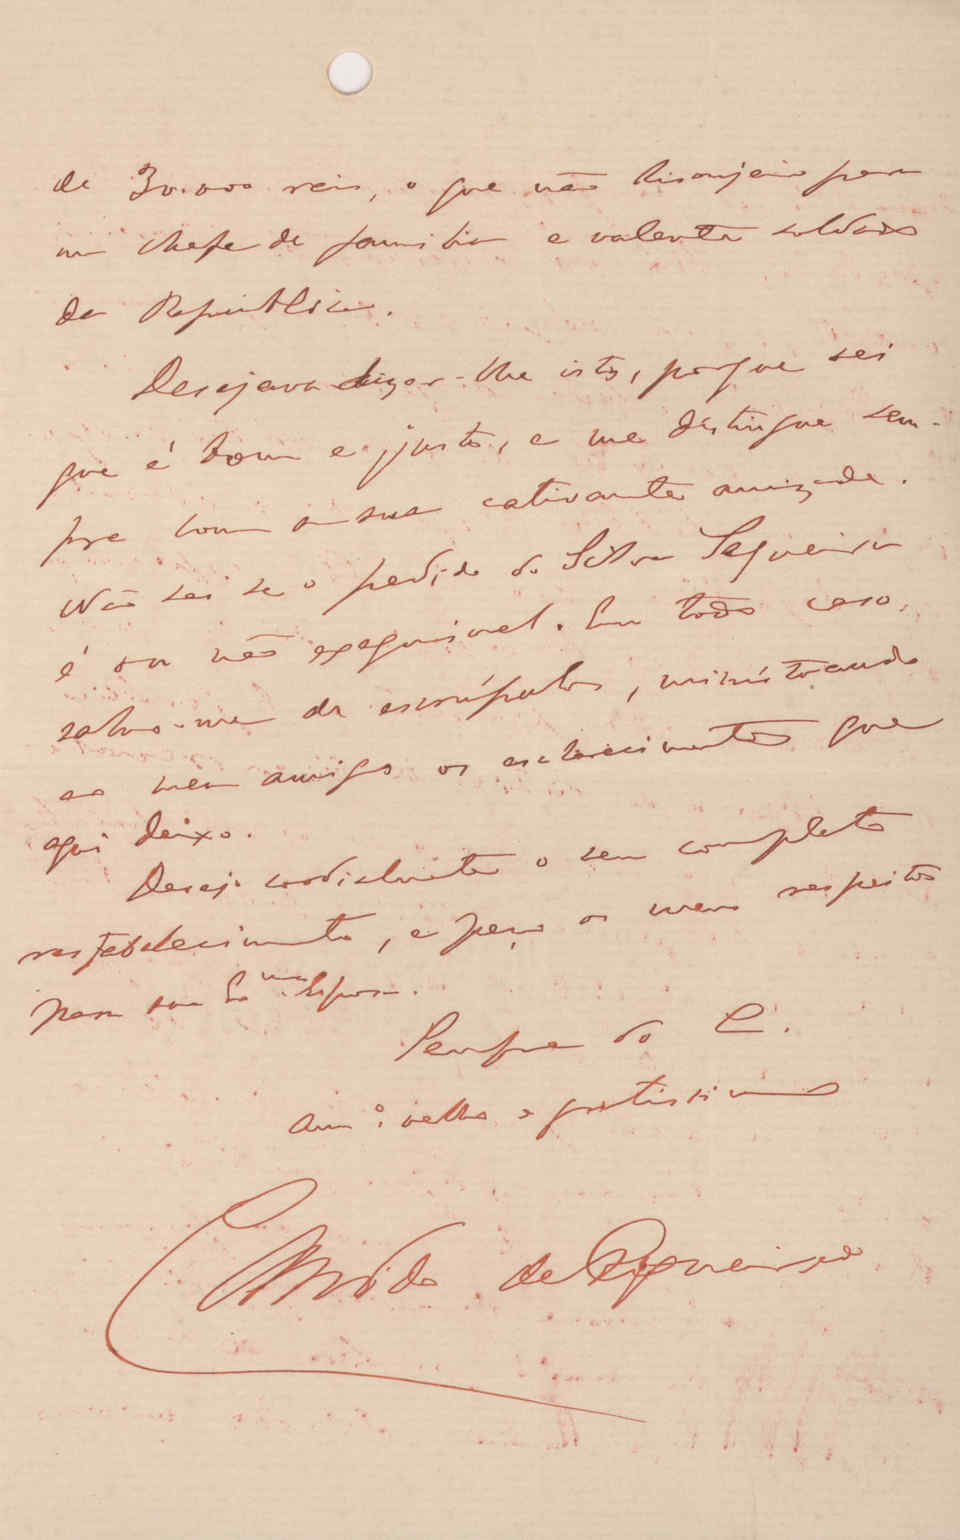 de 30.000 reis, o que não lisonjeia para
um chefe de familia e valente soldado
da Republica.
Desejava dizer-lhe isto, porque sei
que é bom e justo, e me distingue sem-
pre com a sua cativante amizade.
Não sei se o pedido do Silva Sequeira
é ou não exequivel. Em todo caso,
salvo-me de escrúpulos, ministrando
ao meu amigo os esclarecimentos que
aqui deixo.
Desejo cordialmente o seu completo
restabelecimento, e peço os meus respeitos
para sua Ex.ma Esposa.
Sempre do C.
Am.º velho e gratissimo
de Figueiredo